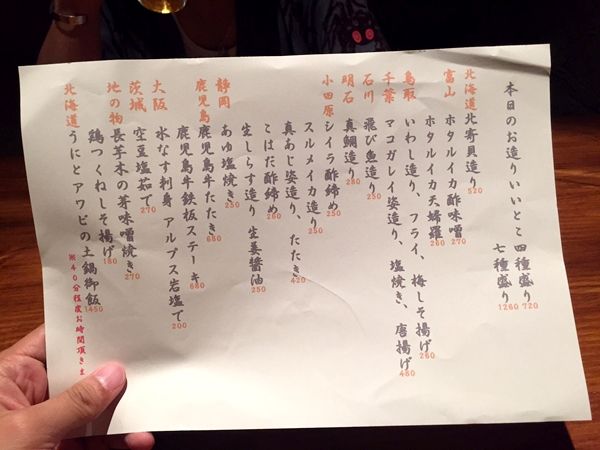 本日のお造りいいとこ四種盛り 720
七種盛り 1260
北海道 北寄貝造り 520
富山 ホタルイカ酢味噌 270
ホタルイカ天婦羅 260
鳥取 いわし造り、フライ、梅しそ揚げ 260
千葉 マコガレイ姿造り、塩焼き、唐揚げ 480
石川 飛び魚造り 250
明石 真鯛造り 280
小田原 シイラ酢締め 250
スルメイカ造り 250
真あじ姿造り、たたき 420
こはだ酢締め 260
生しらす造り 生姜醤油 250
静岡 あゆ塩焼き 250
鹿児島 鹿児島牛たたき 680
鹿児島牛鉄板ステーキ 680
大阪 水なす刺身 アルプス岩塩で 200
茨城 空豆塩茹で 270
地の物 長芋木の芽味噌焼き 270
鶏つくねしそ揚げ 180
北海道 うにとアワビの土鍋御飯 1450
※40分程度お時間頂きま